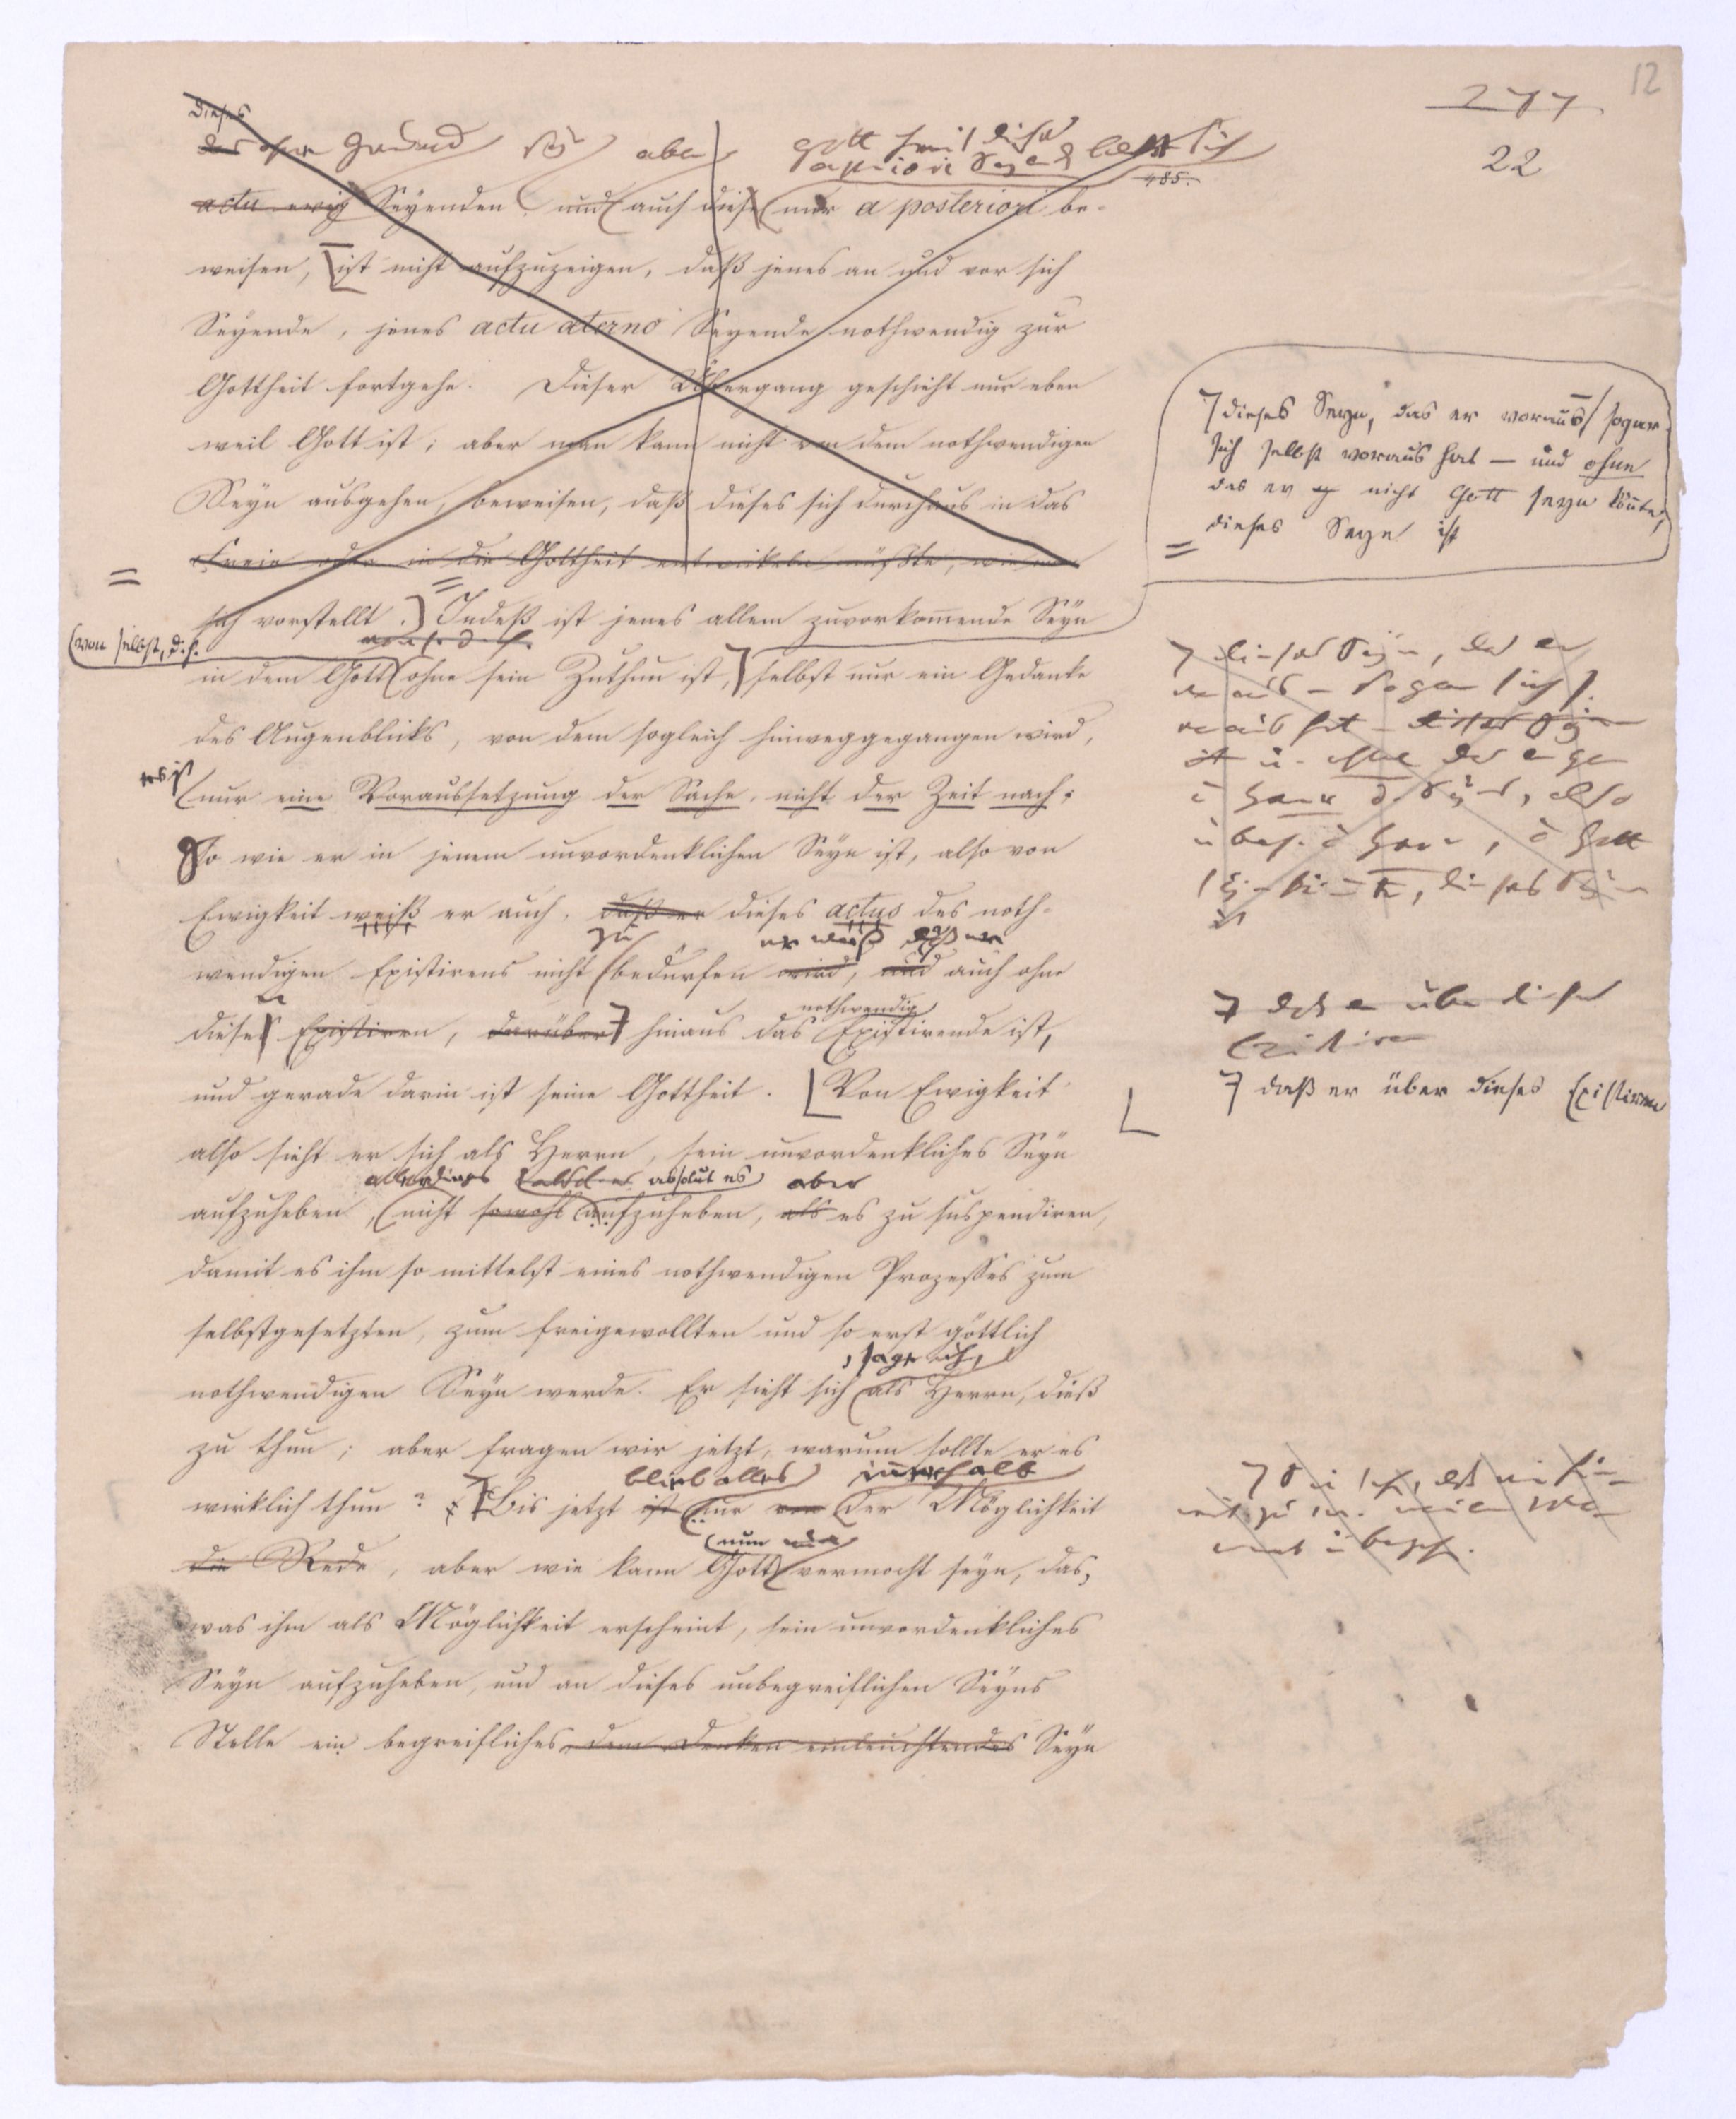 277
12
22
Dieses
ohne Grund Sey aber Gott mit dieser
a priori Seyend läßt sich
485.
actu ewig Seyenden und auch dieses nur a posteriori be-
weisen, ist nicht aufzuzeigen, daß jenes an und vor sich
Seyende, jenes actu aterno Seyende nothwendig zur
Gottheit fortgehe. Dieser Übergang geschieht nur eben
weil Gott ist; aber man kann nicht von dem nothwendigen
Seyn ausgehen, beweisen, daß dieses sich durchaus in das
Freie oder in die Gottheit entwickeln müßte, wie man
sich vorstellt. Indeß ist jenes allem zuvorkom̄ende Seyn
(von selbst, d.h.
in dem Gott ohne sein Zuthun ist, selbst nur ein Gedanke
des Augenblicks, von dem sogleich hinweggegangen wird,
es ist
nur eine Voraussetzung der Sache, nicht der Zeit nach;
So wie er in jenem unvordenklichen Seyn ist, also von
Ewigkeit weiß er auch, daß er dieses actus des noth-
zu er weiß daß er
wendigen Existirens nicht bedürfen wird, und auch ohne
nothwendig
dieses Existiren, darüber hinaus das Existirende ist,
und gerade darin ist seine Gottheit. Von Ewigkeit
also sieht er sich als Herrn, sein unvordenkliches Seyn
allerdings absolut es aber
aufzuheben, nicht sowohl aufzuheben, als es zu suspendiren,
damit es ihm so mittelst eines nothwendigen Prozesses zum
selbstgesetzten, zum freigewollten und so erst göttlich
, sage ich,
nothwendigen Seyn werde. Er sieht sich als Herrn, dieß
zu thun; aber fragen wir jetzt, warum sollte er es
blieb alles innerhalb
wirklich thun? Bis jetzt ist nur von der Möglichkeit
nun
die Rede, aber wie kann Gott vermocht seyn, das,
was ihm als Möglichkeit erscheint, sein unvordenkliches
Seyn aufzuheben, und an dieses unbegreiflichen Seyns
Stelle ein begreifliches, dem Denken einleuchtendes Seyn
dieses Seyn, das er voraus/ sogar
sich selbst voraus hat — und ohne
das er nicht Gott seyn kön̄te,
dieses Seyn ist
dieses Seyn, das er
voraus — sogar sich s.
voraus hat — dieses Seyn
daß er über dieses
Existiren
daß er über dieses Existiren